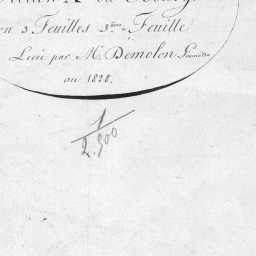 en 3 Feuilles 3ème Feuille
Levé par M. Demolon
an 1828.
1
2.500